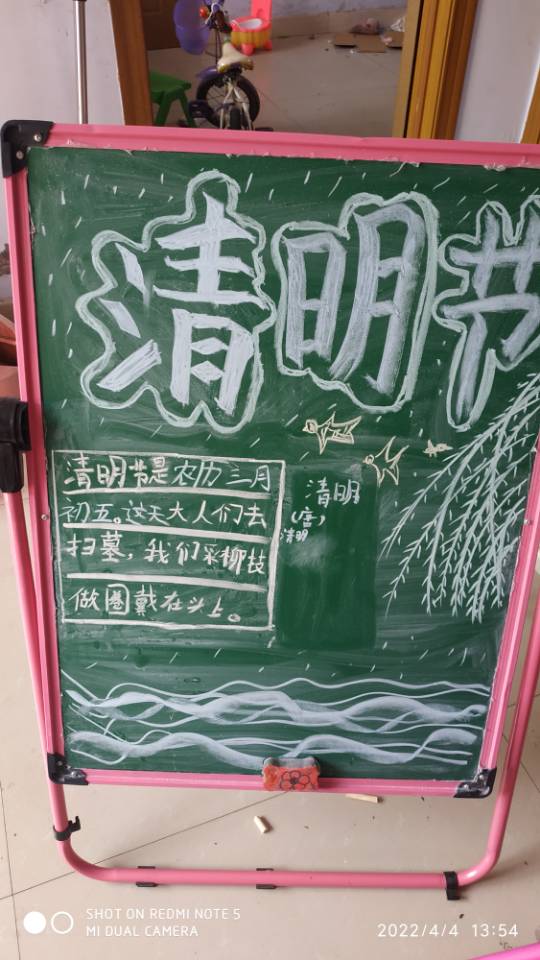 清明节
清明节是农历三月
初五。这天大人们去
扫墓，我们采柳枝
做圈戴在头上。
清明
（唐）
清明
SHOT ON REDMI NOTE 5
MI DUAL CAMERA
2022/4/4 13:54